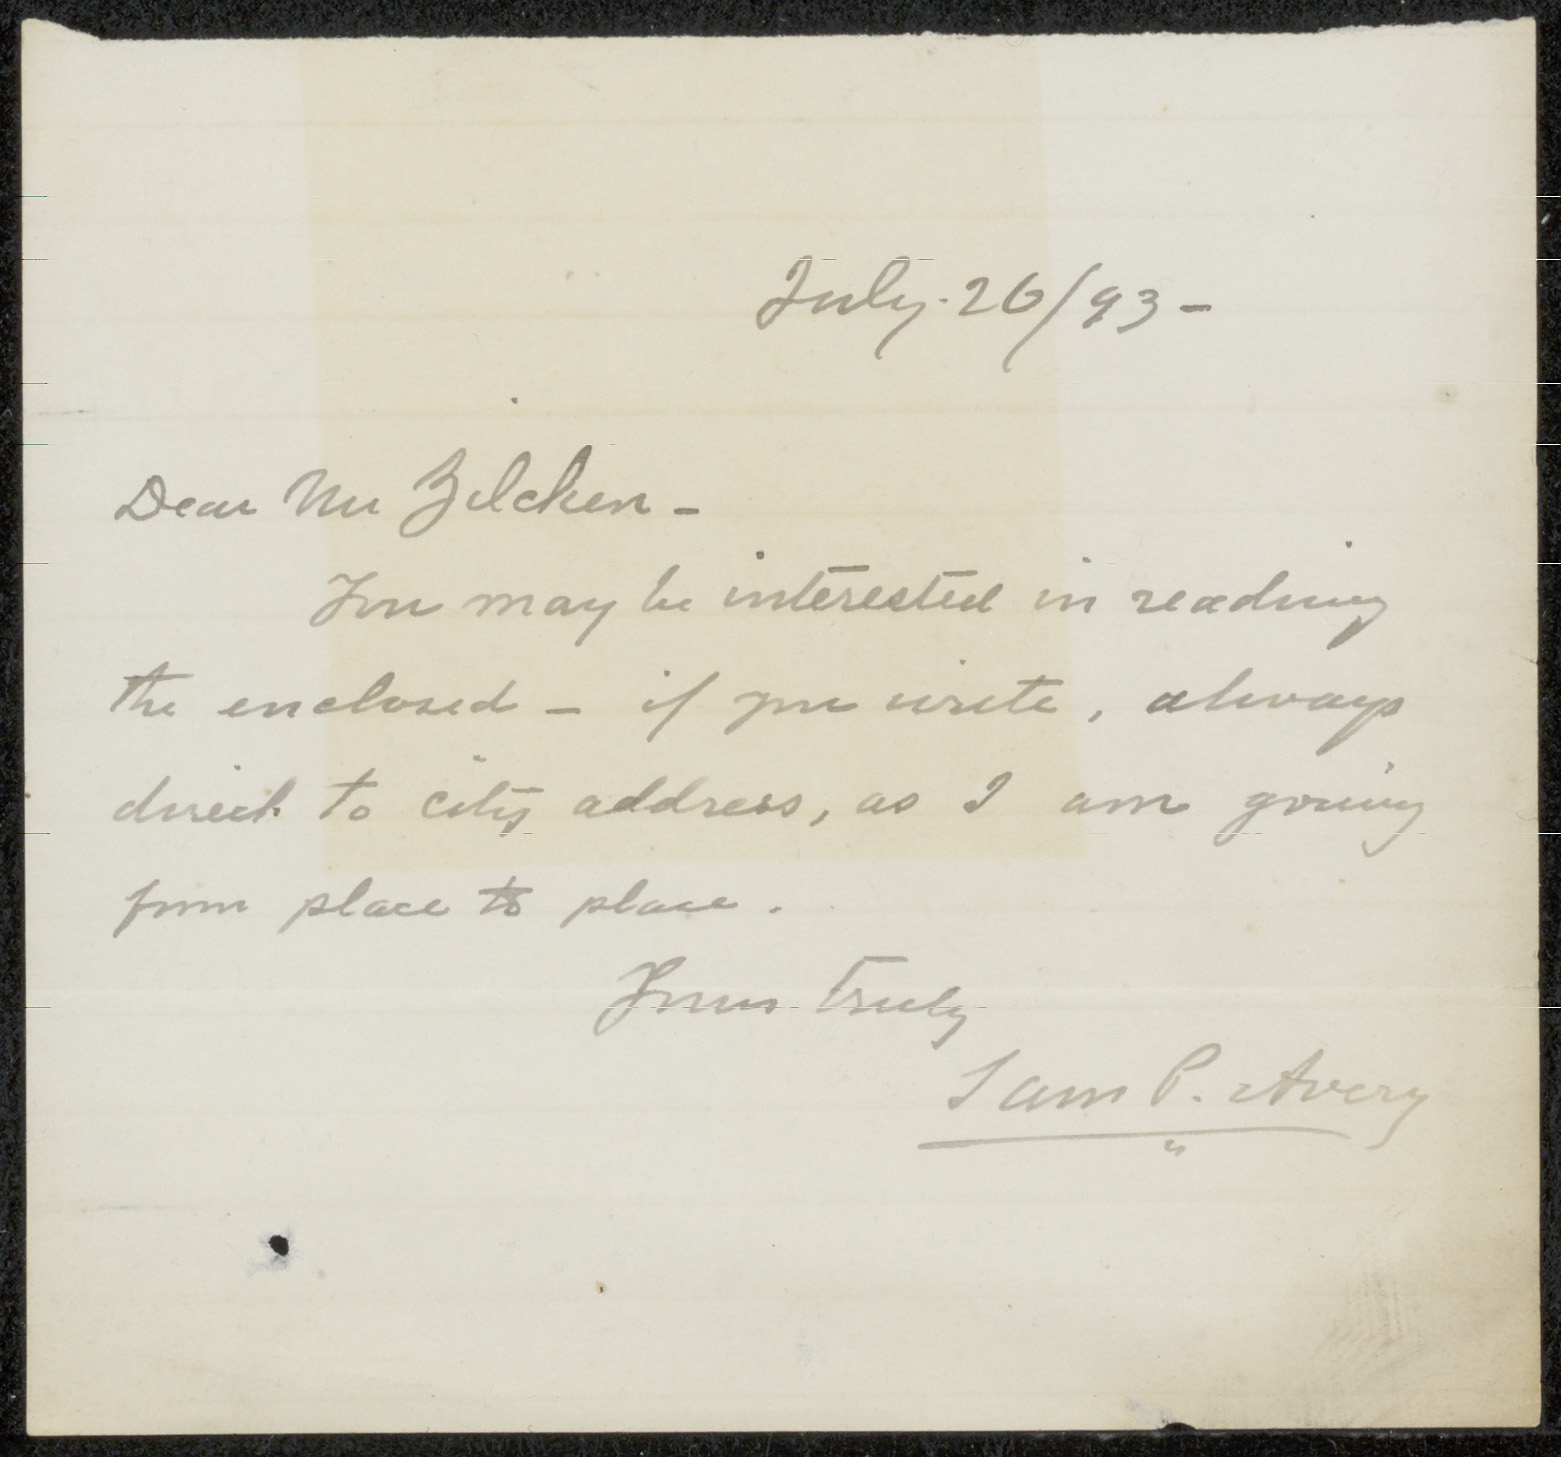 July. 26/93 -
Dear Mr Zilcken -
You may be interested in reading
the enclosed - if you write, always
direct to city address, as I am going
from place to place.
Yours truly
Sam P. Avery